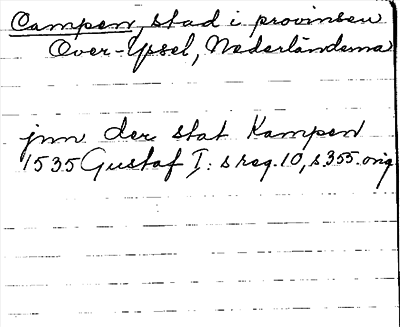 Campen, stad i provinsen
Over-Ysel, Nederländerna
jnn der stat Kampen
1535 Gustaf I: s reg. 10, s. 355. orig